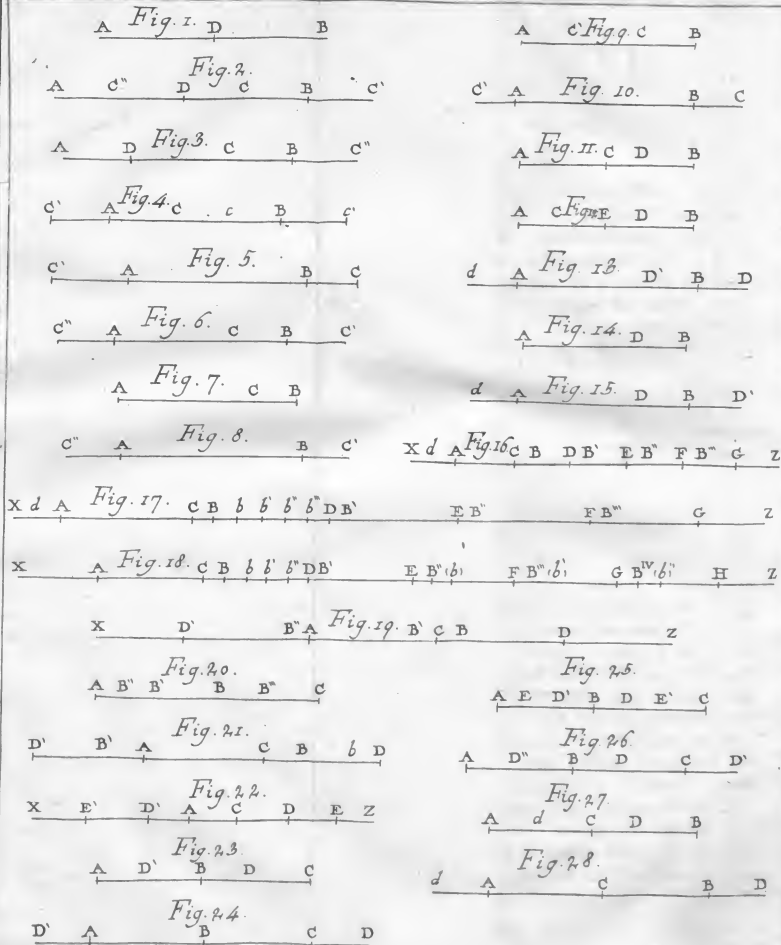 A Fig. 1. D B
A C" Fig. 2. D C B C'
A D Fig. 3. C B C"
C' A Fig. 4. C c B c'
C' A Fig. 5. B C
C" A Fig. 6. C B C'
A Fig. 7. C B
C" A Fig. 8. B C'
A C' Fig. 9. C B
C' A Fig. 10. B C
A Fig. 11. C D B
A C Fig. 12. E D B
d A Fig. 13. D' B D
A Fig. 14. D B
d A Fig. 15. D B D'
X d A Fig. 16. C B D B' E B" F B''' G Z
X d A Fig. 17. C B b b' b" b''' D B' E B" F B''' G Z
X A Fig. 18. C B b b' b" D B' E B" (b) F B''' (b') G B^IV (b") H Z
X D' B" A Fig. 19. B' C B D Z
Fig. 20.
A B" B' B B''' C
Fig. 21.
D' B' A C B b D
Fig. 22.
X E' D' A C D E Z
Fig. 23.
A D' B D C
Fig. 24.
D' A B C D
Fig. 25.
A E D' B D E' C
Fig. 26
A D" B D C D'
Fig. 27.
A d C D B
Fig. 28.
d A C B D